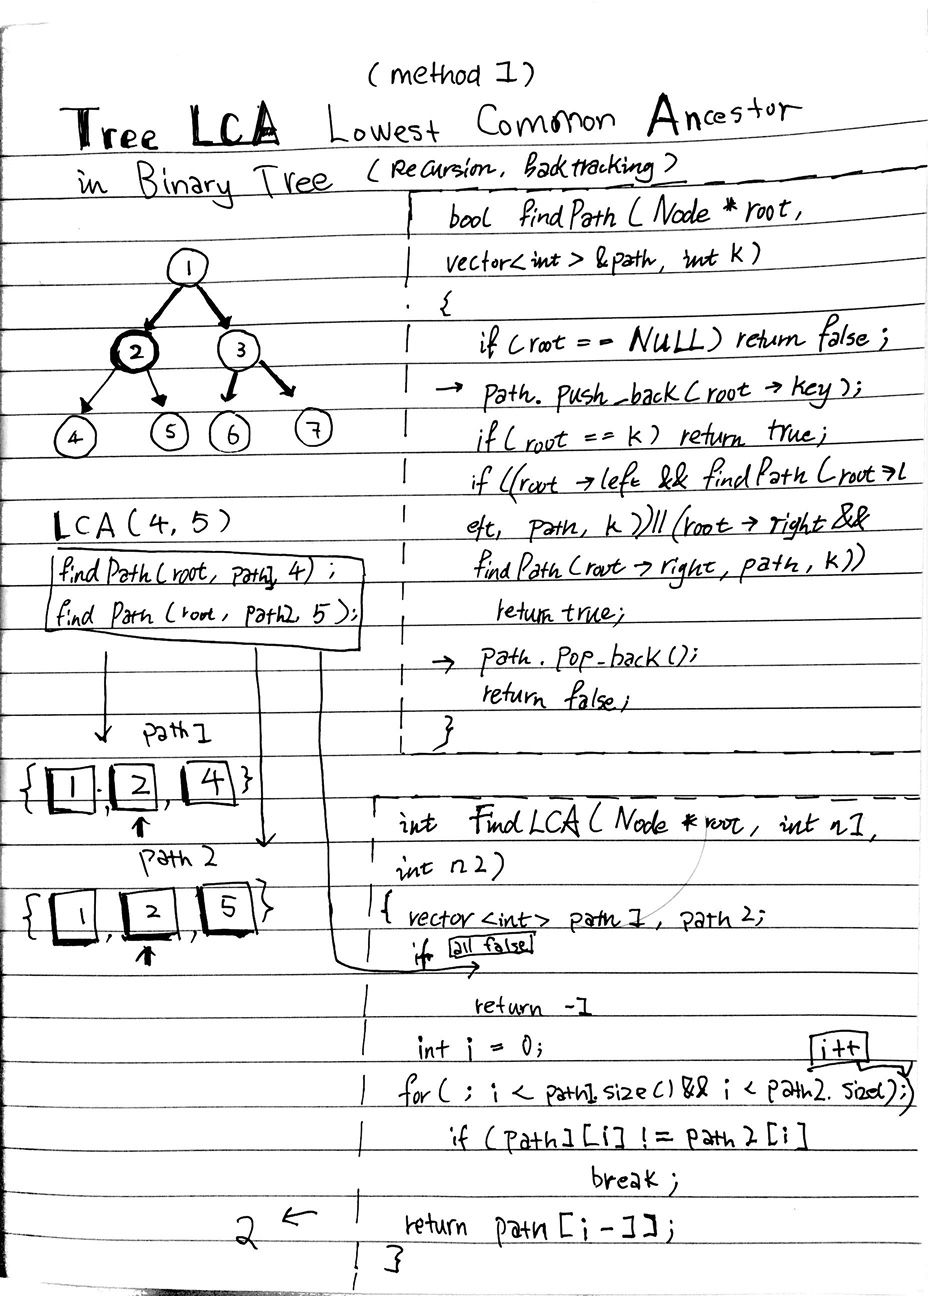 (method 1)
Tree LCA Lowest Common Ancestor
in Binary Tree (Recursion, backtracking)
1
2 3
4 5 6 7
LCA(4,5)
find Path(root, path1, 4);
find Path(root, path2, 5);
path1
{ 1, 2, 4 }
path 2
{ 1, 2, 5 }
bool findPath (Node * root,
vector<int> &path, int k)
{
if (root == NULL) return false;
→ path. push_back(root → key);
if (root == k) return true;
if ((root → left && findPath (root→l
eft, path, k))||(root → right &&
findPath(root → right, path, k))
return true;
→ path. pop_back();
return false;
}
int FindLCA (Node * root, int n1,
int n2)
{ vector <int> path 1, path 2;
if all false
return -1
int i = 0;
i++
for( ; i < path1.size() && i < path2. size();)
if (path1[i] != path2[i]
break;
2 ← return path [i-1];
}